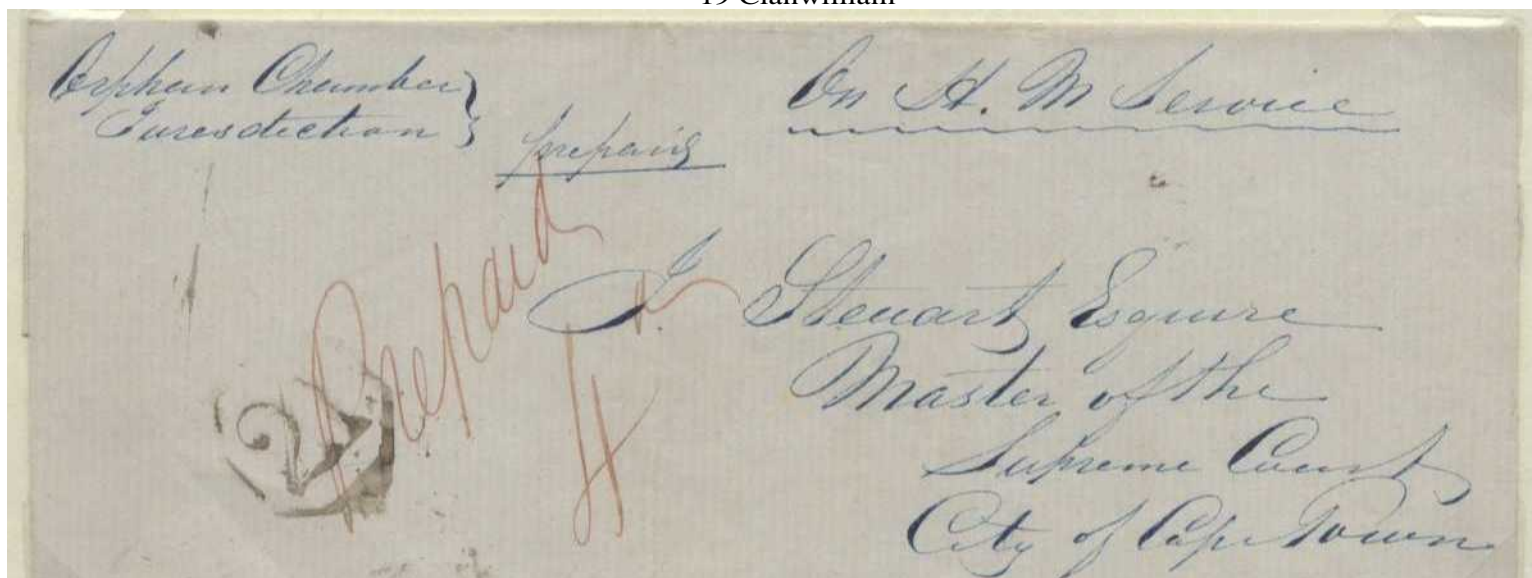 19 Clanwilliam
Orphan Chamber }
Juresdiction }
On H. M Service
prepaid
Prepaid
4 d.
J Steuart Esquire
Master of the
Supreme Court
City of Cape Town
2